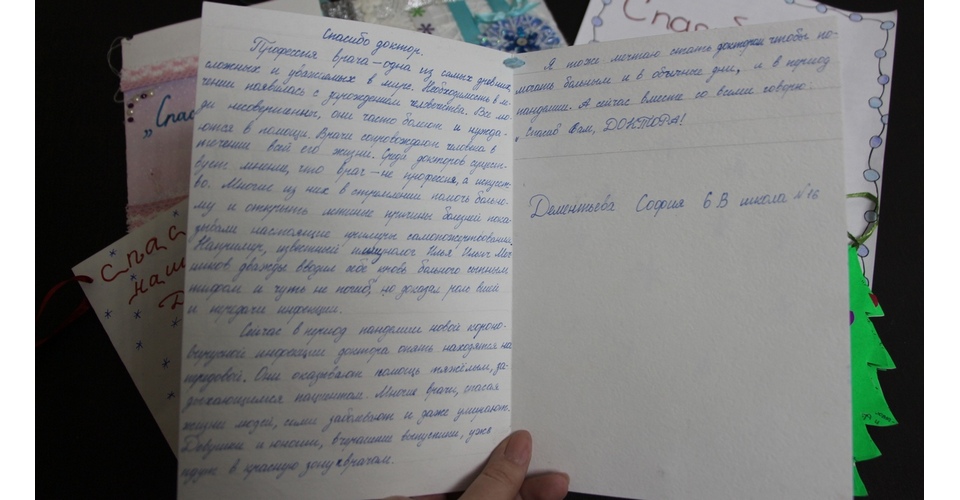 Спасибо доктор.
Профессия врача – одна из самых древних,
сложных и уважаемых в мире. Необходимость в ле-
чении появилась с рождением человечества. Все лю-
ди несовершенны, они часто болеют и нужда-
ются в помощи. Врачи сопровождают человека в
течении всей его жизни. Среди докторов сущест-
вует мнение, что врач – не профессия, а искусст-
во. Многие из них в стремлении помочь больно-
му и открыть истинные причины болезней пока-
зывали настоящие примеры самопожертвования.
Например, известный иммунолог Илья Ильич Меч
ников дважды вводил себе кровь больного сыпным
тифом и чуть не погиб, но доказал роль вшей
и передачи инфекции.
Сейчас в период пандемии новой короно-
вирусной инфекции доктора опять находятся на
передовой. Они оказывают помощь тяжёлым, за-
дыхающимся пациентам. Многие врачи, спасая
жизни людей, сами заболевают и даже умирают.
Девушки и юноши, вчерашние выпускники, уже
идут в красную зону врачом.
Я тоже мечтаю стать доктором чтобы по-
могать больным и в обычные дни, и в период
пандемии. А сейчас вместе со всеми говорю:
"Спасибо Вам, ДОКТОРА!
Дементьева София 6 В школа №16
"Спас
Спас
наш
Спасиб